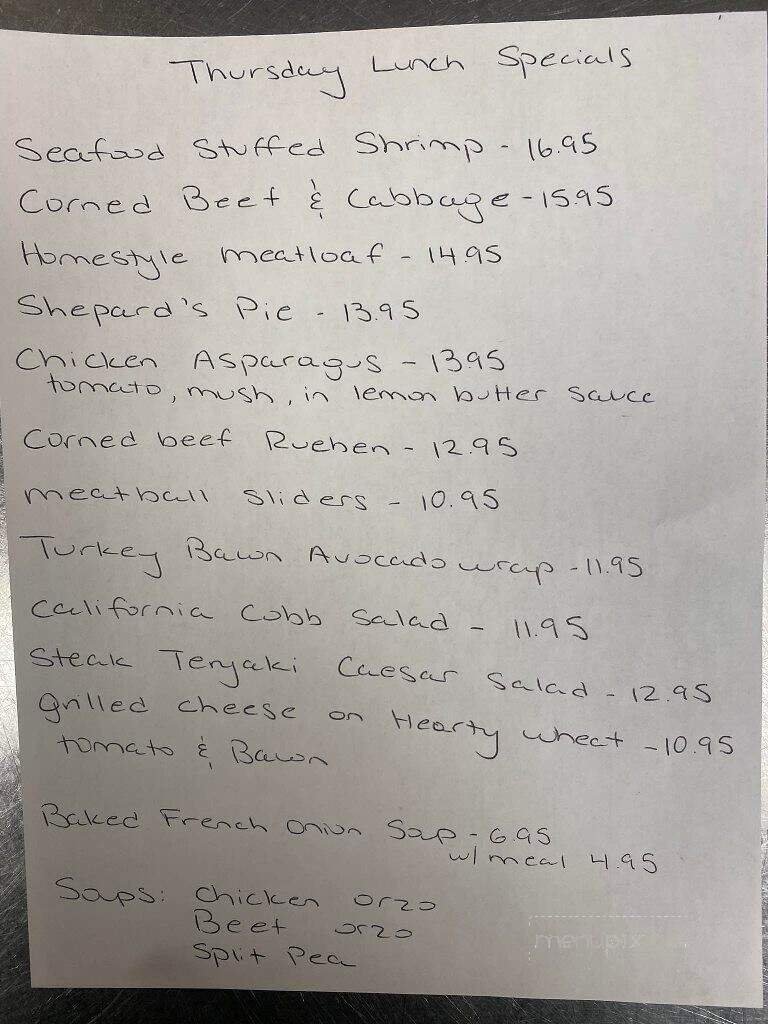 Thursday Lunch Specials
Seafood Stuffed Shrimp - 16.95
Corned Beef & Cabbage - 15.95
Homestyle meatloaf - 14.95
Shepard's Pie - 13.95
Chicken Asparagus - 13.95
tomato, mush, in lemon butter sauce
Corned beef Rueben - 12.95
meatball sliders - 10.95
Turkey Bacon Avocado wrap - 11.95
California Cobb Salad - 11.95
Steak Teryaki Caesar Salad - 12.95
grilled cheese on Hearty wheat - 10.95
tomato & Bacon
Baked French Onion Soup - 6.95
w/ meal 4.95
Soups: Chicken orzo
Beef orzo
Split Pea
menupix